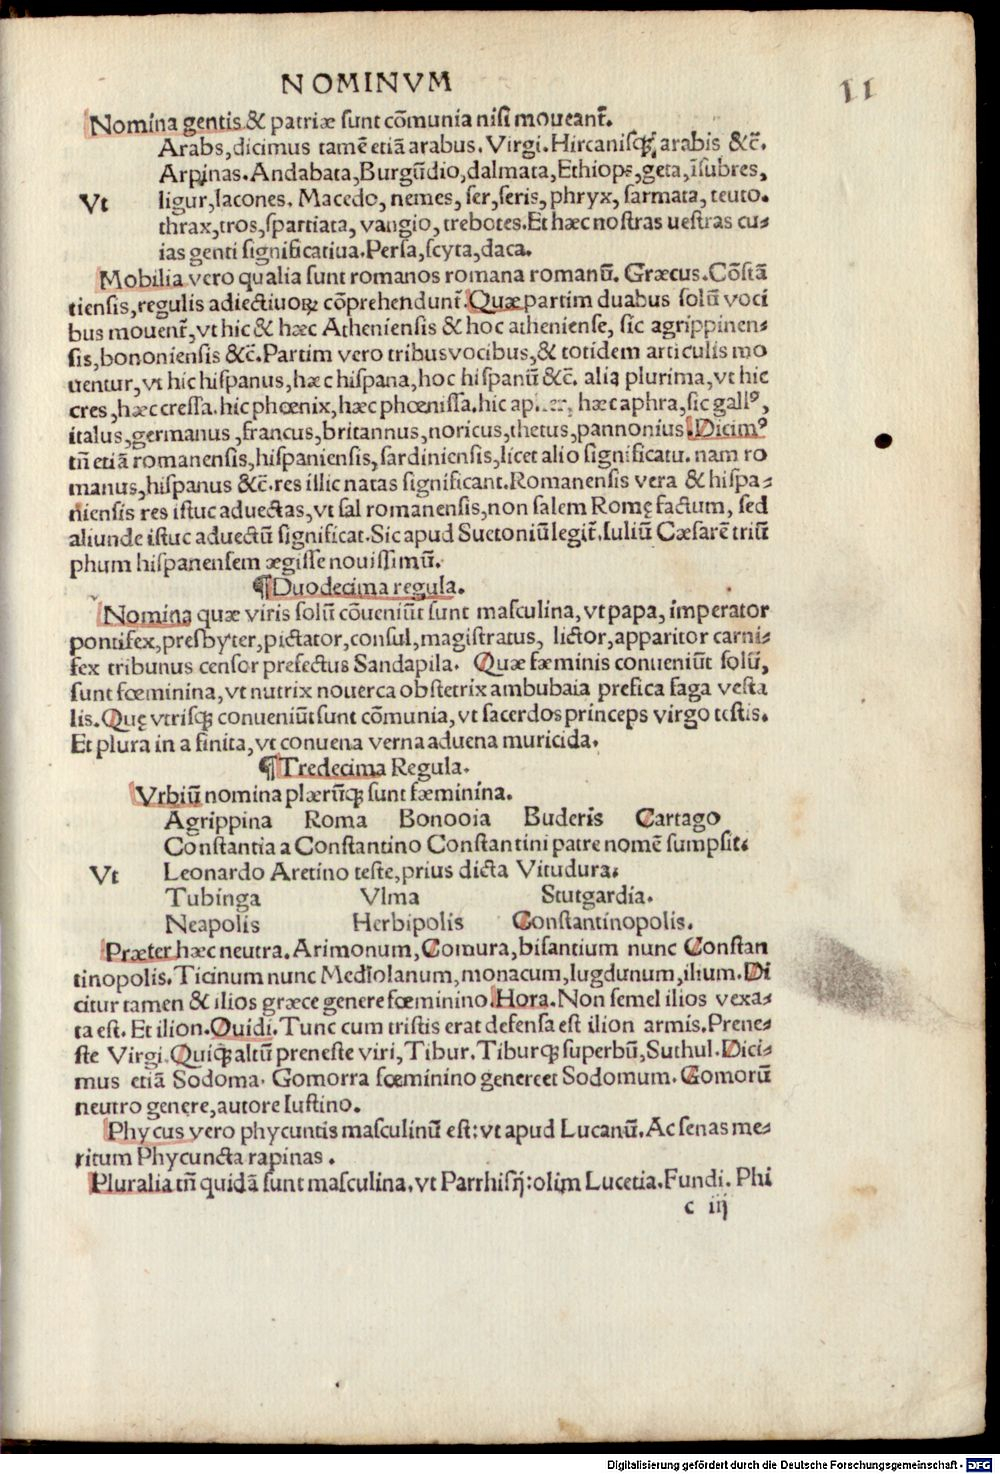 NOMINVM
11
Nomina gentis & patriæ sunt cõmunia nisi moueant̃.
Arabs,dicimus tamẽ etiã arabus. Virgi. Hircanisq; arabis &c̃.
Arpinas. Andabata, Burgũdio, dalmata, Ethiops, geta, ĩsubres,
Vt ligur, lacones. Macedo, nemes, ser, seris, phryx, sarmata, teuto.
thrax, tros, spartiata, vangio, trebotes. Et hæc nostras uestras cu-
ias genti significatiua. Persa, scyta, daca.
Mobilia vero qualia sunt romanos romana romanũ. Græcus. Cõstã
tiensis, regulis adiectiuoꝝ cõprehendunt̃. Quæ partim duabus solũ voci
bus mouent̃, vt hic & hæc Atheniensis & hoc atheniense, sic agrippinen-
sis, bononiensis &c̃. Partim vero tribus vocibus, & totidem articulis mo
uentur, vt hic hispanus, hæc hispana, hoc hispanũ &c̃. alia plurima, vt hic
cres, hæc cressa. hic phœnix, hæc phœnissa. hic hæc aphra, sic gallꝰ,
italus, germanus, francus, britannus, noricus, thetus, pannonius. Dicimꝰ
tñ etiã romanensis, hispaniensis, sardiniensis, licet alio significatu. nam ro
manus, hispanus &c̃. res illic natas significant. Romanensis vera & hispa-
niensis res istuc aduectas, vt sal romanensis, non salem Romę factum, sed
aliunde istuc aduectũ significat. Sic apud Suetoniũ legit̃. Iuliũ Cæsarẽ triũ
phum hispanensem ægisse nouissimũ.
¶ Duodecima regula.
Nomina quæ viris solũ cõueniũt sunt masculina, vt papa, imperator
pontifex, presbyter, pictator, consul, magistratus, lictor, apparitor carni-
fex tribunus censor prefectus Sandapila. Quæ fæminis conueniũt solũ,
sunt fœminina, vt nutrix nouerca obstetrix ambubaia prefica saga vesta
lis. Quę vtrisq; conueniũt sunt cõmunia, vt sacerdos princeps virgo testis.
Et plura in a finita, vt conuena verna aduena muricida.
¶ Tredecima Regula.
Vrbiũ nomina plærũq; sunt fæminina.
Agrippina Roma Bonooia Buderis Cartago
Constantia a Constantino Constantini patre nomẽ sumpsit.
Vt Leonardo Aretino teste, prius dicta Vitudura.
Tubinga Vlma Stutgardia.
Neapolis Herbipolis Constantinopolis.
Præter hæc neutra. Arimonum, Comura, bisantium nunc Constan
tinopolis. Ticinum nunc Mediolanum, monacum, lugdunum, ilium. Di
citur tamen & ilios græce genere fœminino. Hora. Non semel ilios vexa-
ta est. Et ilion. Ouidi. Tunc cum tristis erat defensa est ilion armis. Prene-
ste Virgi. Quiq; altũ preneste viri, Tibur. Tiburq; superbũ, Suthul. Dici-
mus etiã Sodoma. Gomorra fœminino genere et Sodomum. Gomorũ
neutro genere, autore Iustino.
Phycus vero phycuntis masculinũ est: vt apud Lucanũ. Ac senas me-
ritum Phycuncta rapinas.
Pluralia tñ quidã sunt masculina. vt Parrhisij: olim Lucetia. Fundi. Phi
c iij
Digitalisierung gefördert durch die Deutsche Forschungsgemeinschaft - DFG